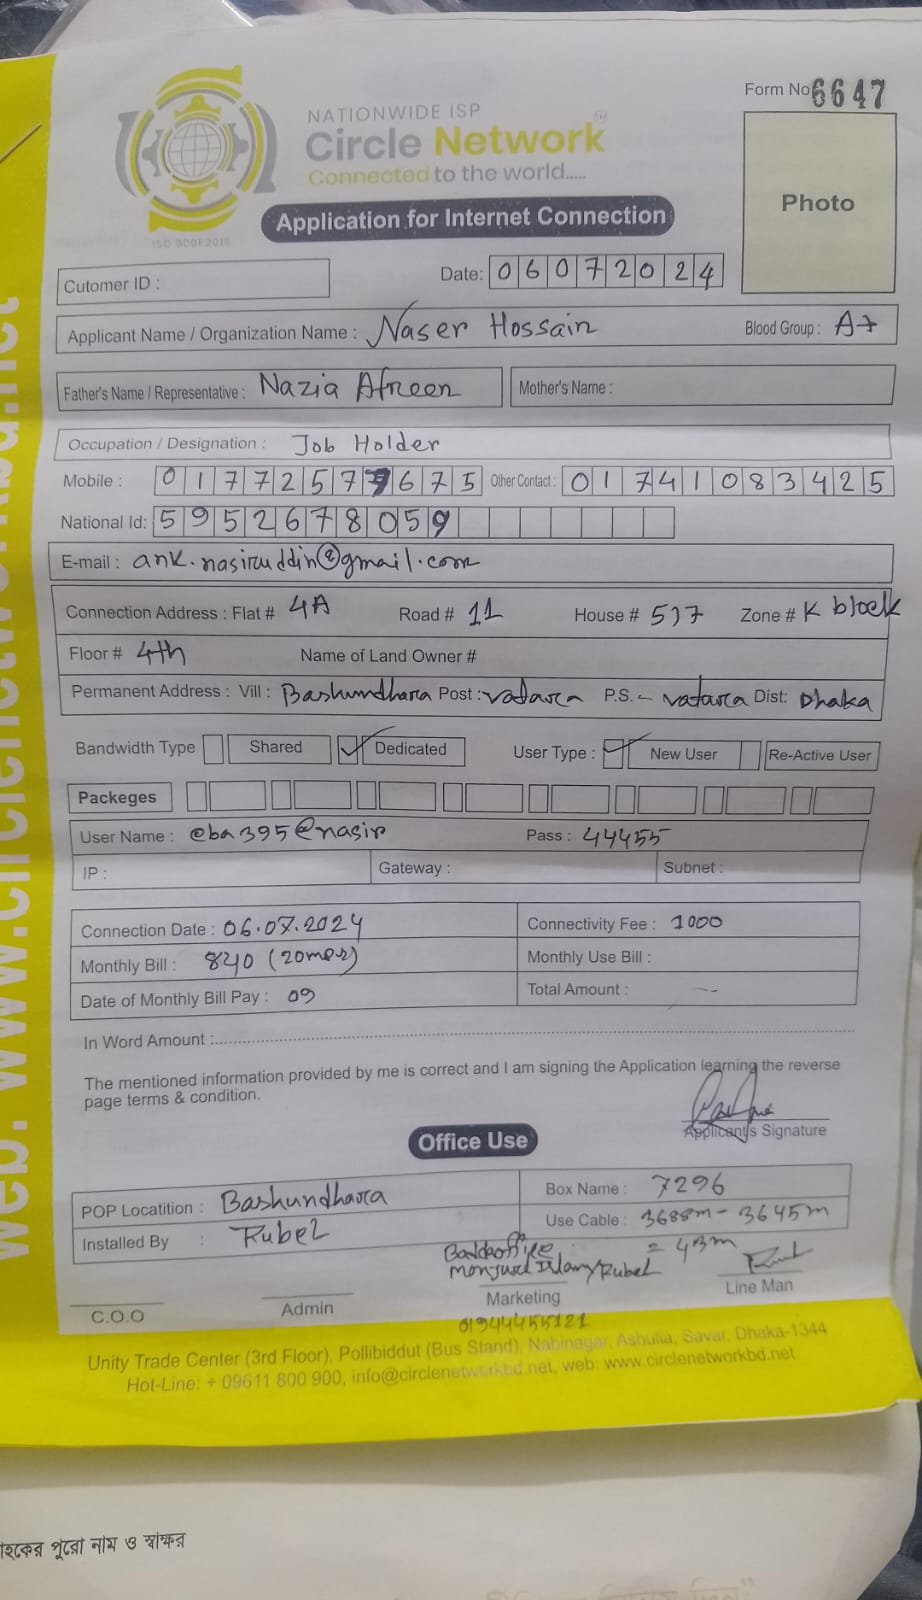 Form No 6647
NATIONWIDE ISP
Circle Network
Connected to the world.....
ISO 9001:2015
Photo
Application for Internet Connection
Cutomer ID :
Date: 06072024
Applicant Name / Organization Name : Naser Hossain Blood Group : A+
Father's Name / Representative : Nazia Afreen Mother's Name :
Occupation / Designation : Job Holder
Mobile : 01772577675 Other Contact : 01741083425
National Id: 5952678059
E-mail : ank.nasiruddin@gmail.com
Connection Address : Flat # 4A Road # 11 House # 517 Zone # K block
Floor # 4th Name of Land Owner #
Permanent Address : Vill : Bashundhara Post : vatara P.S. - vatara Dist: Dhaka
Bandwidth Type Shared Dedicated User Type : New User Re-Active User
Packeges
User Name : @ba395@nasir Pass : 44455
IP : Gateway : Subnet :
Connection Date : 06.07.2024 Connectivity Fee : 1000
Monthly Bill : 840 (20mbps) Monthly Use Bill :
Date of Monthly Bill Pay : 09 Total Amount : --
In Word Amount :
The mentioned information provided by me is correct and I am signing the Application learning the reverse
page terms & condition.
Applicant's Signature
Office Use
POP Locatition : Bashundhara Box Name : 7296
Installed By : Rubel Use Cable : 3688m - 3645m
= 43m
Rubel
C.O.O Admin Marketing Line Man
01944455121
Unity Trade Center (3rd Floor), Pollibiddut (Bus Stand), Nabinagar, Ashulia, Savar, Dhaka-1344
Hot-Line: + 09611 800 900, info@circlenetworkbd.net, web: www.circlenetworkbd.net
web: www.circlenetworkbd.net
হকের পুরো নাম ও স্বাক্ষর